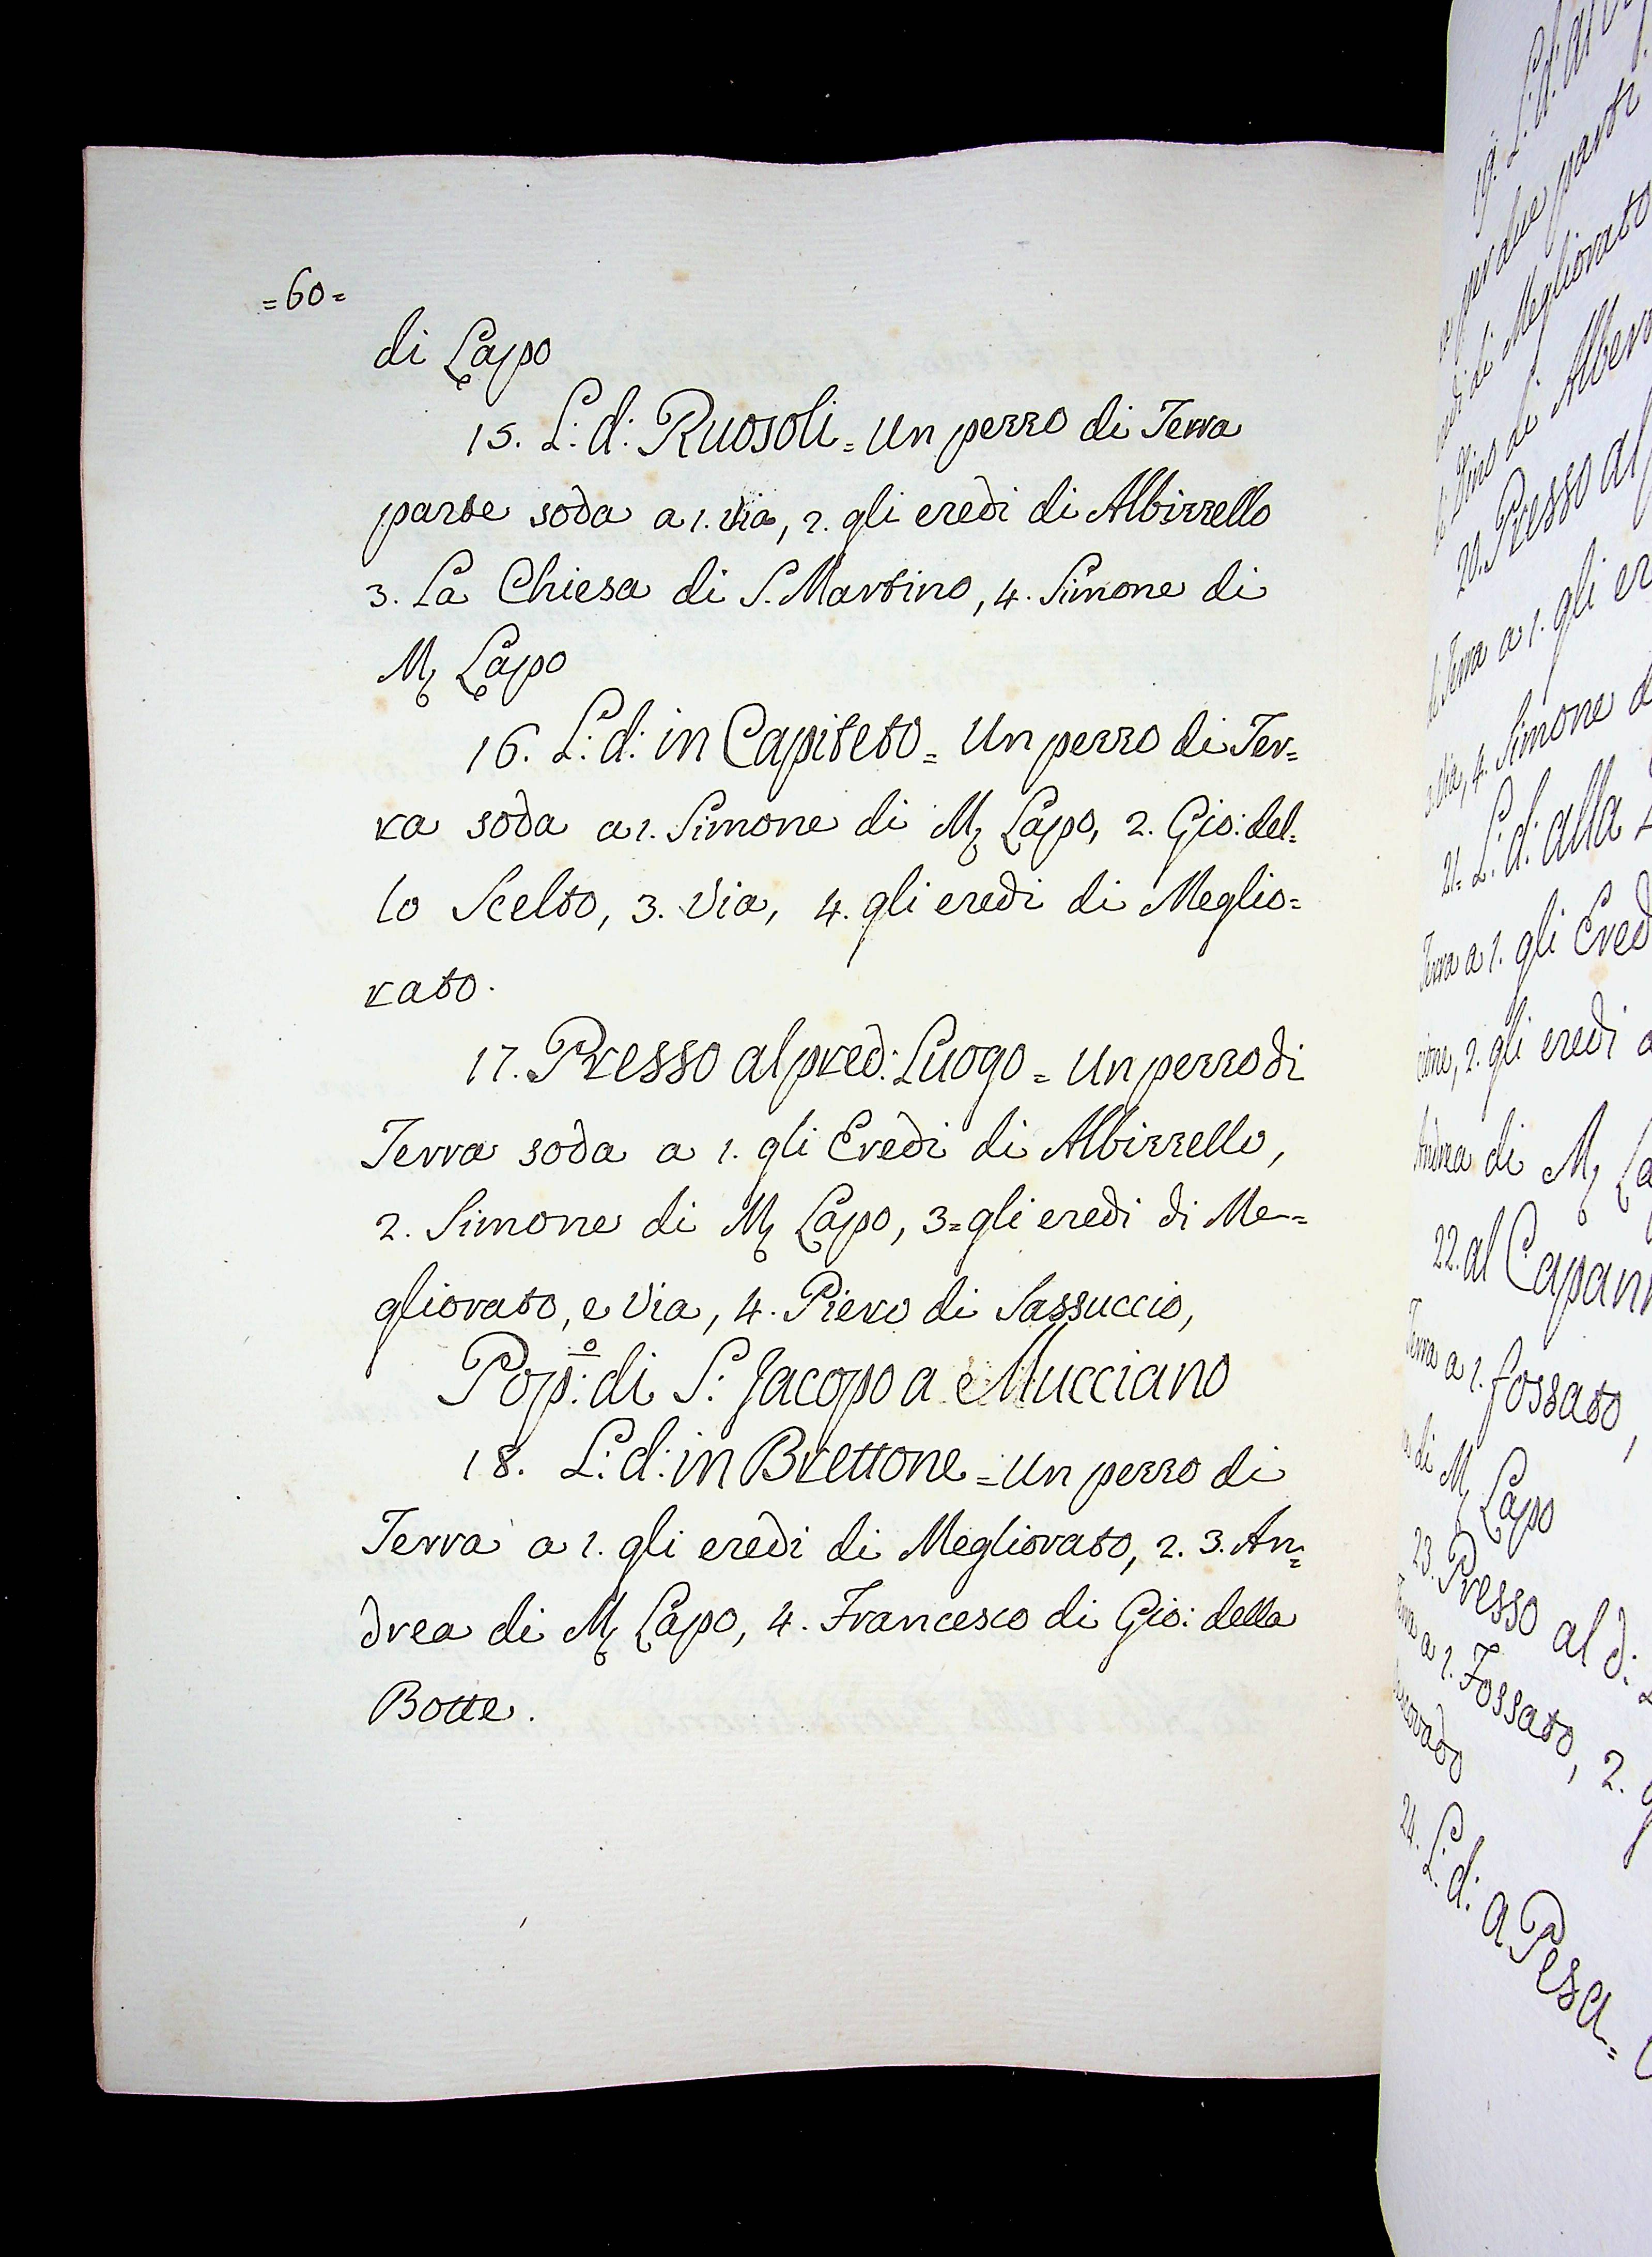 =60=
di Lapo
15. L: d: Ruosoli = Un pezzo di Terra
parte soda a 1. Via, 2. gli eredi di Albizzello
3. La Chiesa di S. Martino, 4. Simone di
M. Lapo
16. L: d: in Capiteto = Un pezzo di Ter=
ra soda a 1. Simone di M. Lapo, 2. Gio: del=
lo Scelto, 3. Via, 4. gli eredi di Meglio=
rato.
17. Presso al pred: Luogo = Un pezzo di
Terra soda a 1. gli Eredi di Albizzello,
2. Simone di M. Lapo, 3= gli eredi di Me=
gliorato, e Via, 4. Piero di Sassuccio,
Pop:º di S: Jacopo a Mucciano
18. L: d: in Brettone = Un pezzo di
Terra a 1. gli eredi di Megliorato, 2. 3. An=
drea di M. Lapo, 4. Francesco di Gio: della
Botte.
19. L: d: al
per due parti
di Megliorato
di Alber
20. Presso al
Terra a 1. gli er
Via, 4. Simone d
21. L: d: alla
Terra a 1. gli Ered
2. gli eredi d
Andrea di M. La
22. al Capann
Terra a 1. fossato,
di M. Lapo
23. Presso al d:
a 1. Fossato, 2. g
24. L: d: a Pesa =